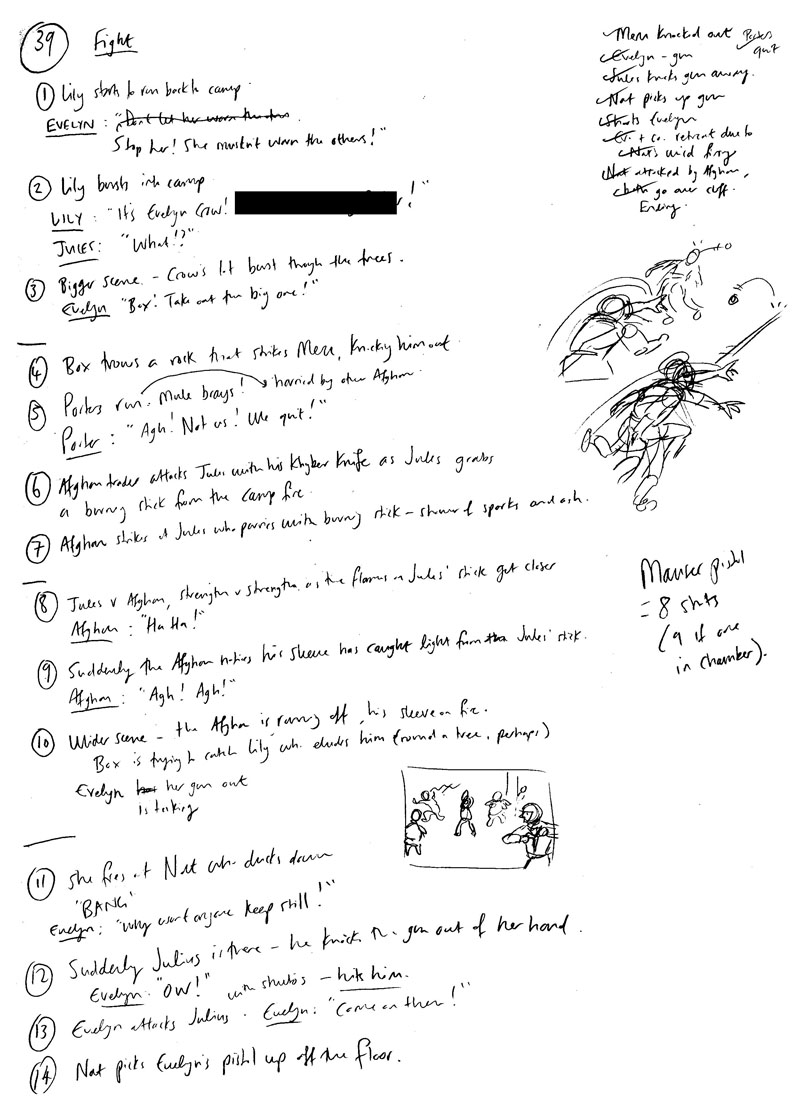 39 Fight
① Lily starts to run back to camp
EVELYN : "Don't let her warn the others
Stop her! She mustn't warn the others!"
② Lily bursts into camp
LILY : "It's Evelyn Crow! !"
JULES: "What!?"
③ Bigger scene – Crow's lot burst through the trees.
Evelyn "Box! Take out the big one!"
④ Box throws a rock that strikes Meru, knocking him out
⑤ Porters run. Mule brays! harried by other Afghan
Porter : "Agh! Not us! We quit!"
⑥ Afghan trader attacks Jules with his Khyber Knife as Jules grabs
a burning stick from the camp fire.
⑦ Afghan strikes at Jules who parries with burning stick – shower of sparks and ash.
⑧ Jules v Afghan, strength v strength as the flames on Jules' stick get closer
Afghan : "Ha Ha!"
⑨ Suddenly the Afghan notices his sleeve has caught light from Jules' stick.
Afghan : "Agh! Agh!"
⑩ Wider scene – the Afghan is running off, his sleeve on fire.
Box is trying to catch Lily who eludes him (round a tree, perhaps)
Evelyn her gun out
is taking
⑪ She fires at Nat who ducks down
"BANG"
Evelyn: "Why won't anyone keep still!"
⑫ Suddenly Julius is there – he knocks the gun out of her hand.
Evelyn: "OW!" with – hits him.
⑬ Evelyn attacks Julius. Evelyn: "Come on then!"
⑭ Nat picks Evelyn's pistol up off the floor.
Meru knocked out Porters quit
Evelyn – gun
Jules knocks gun away.
Nat picks up gun
Shoots Evelyn
Ev. + co. retreat due to
Nat's wild firing
Nat attacked by Afghan,
both go over cliff.
Ending.
Mauser pistol
= 8 shots
(9 if one
in chamber).